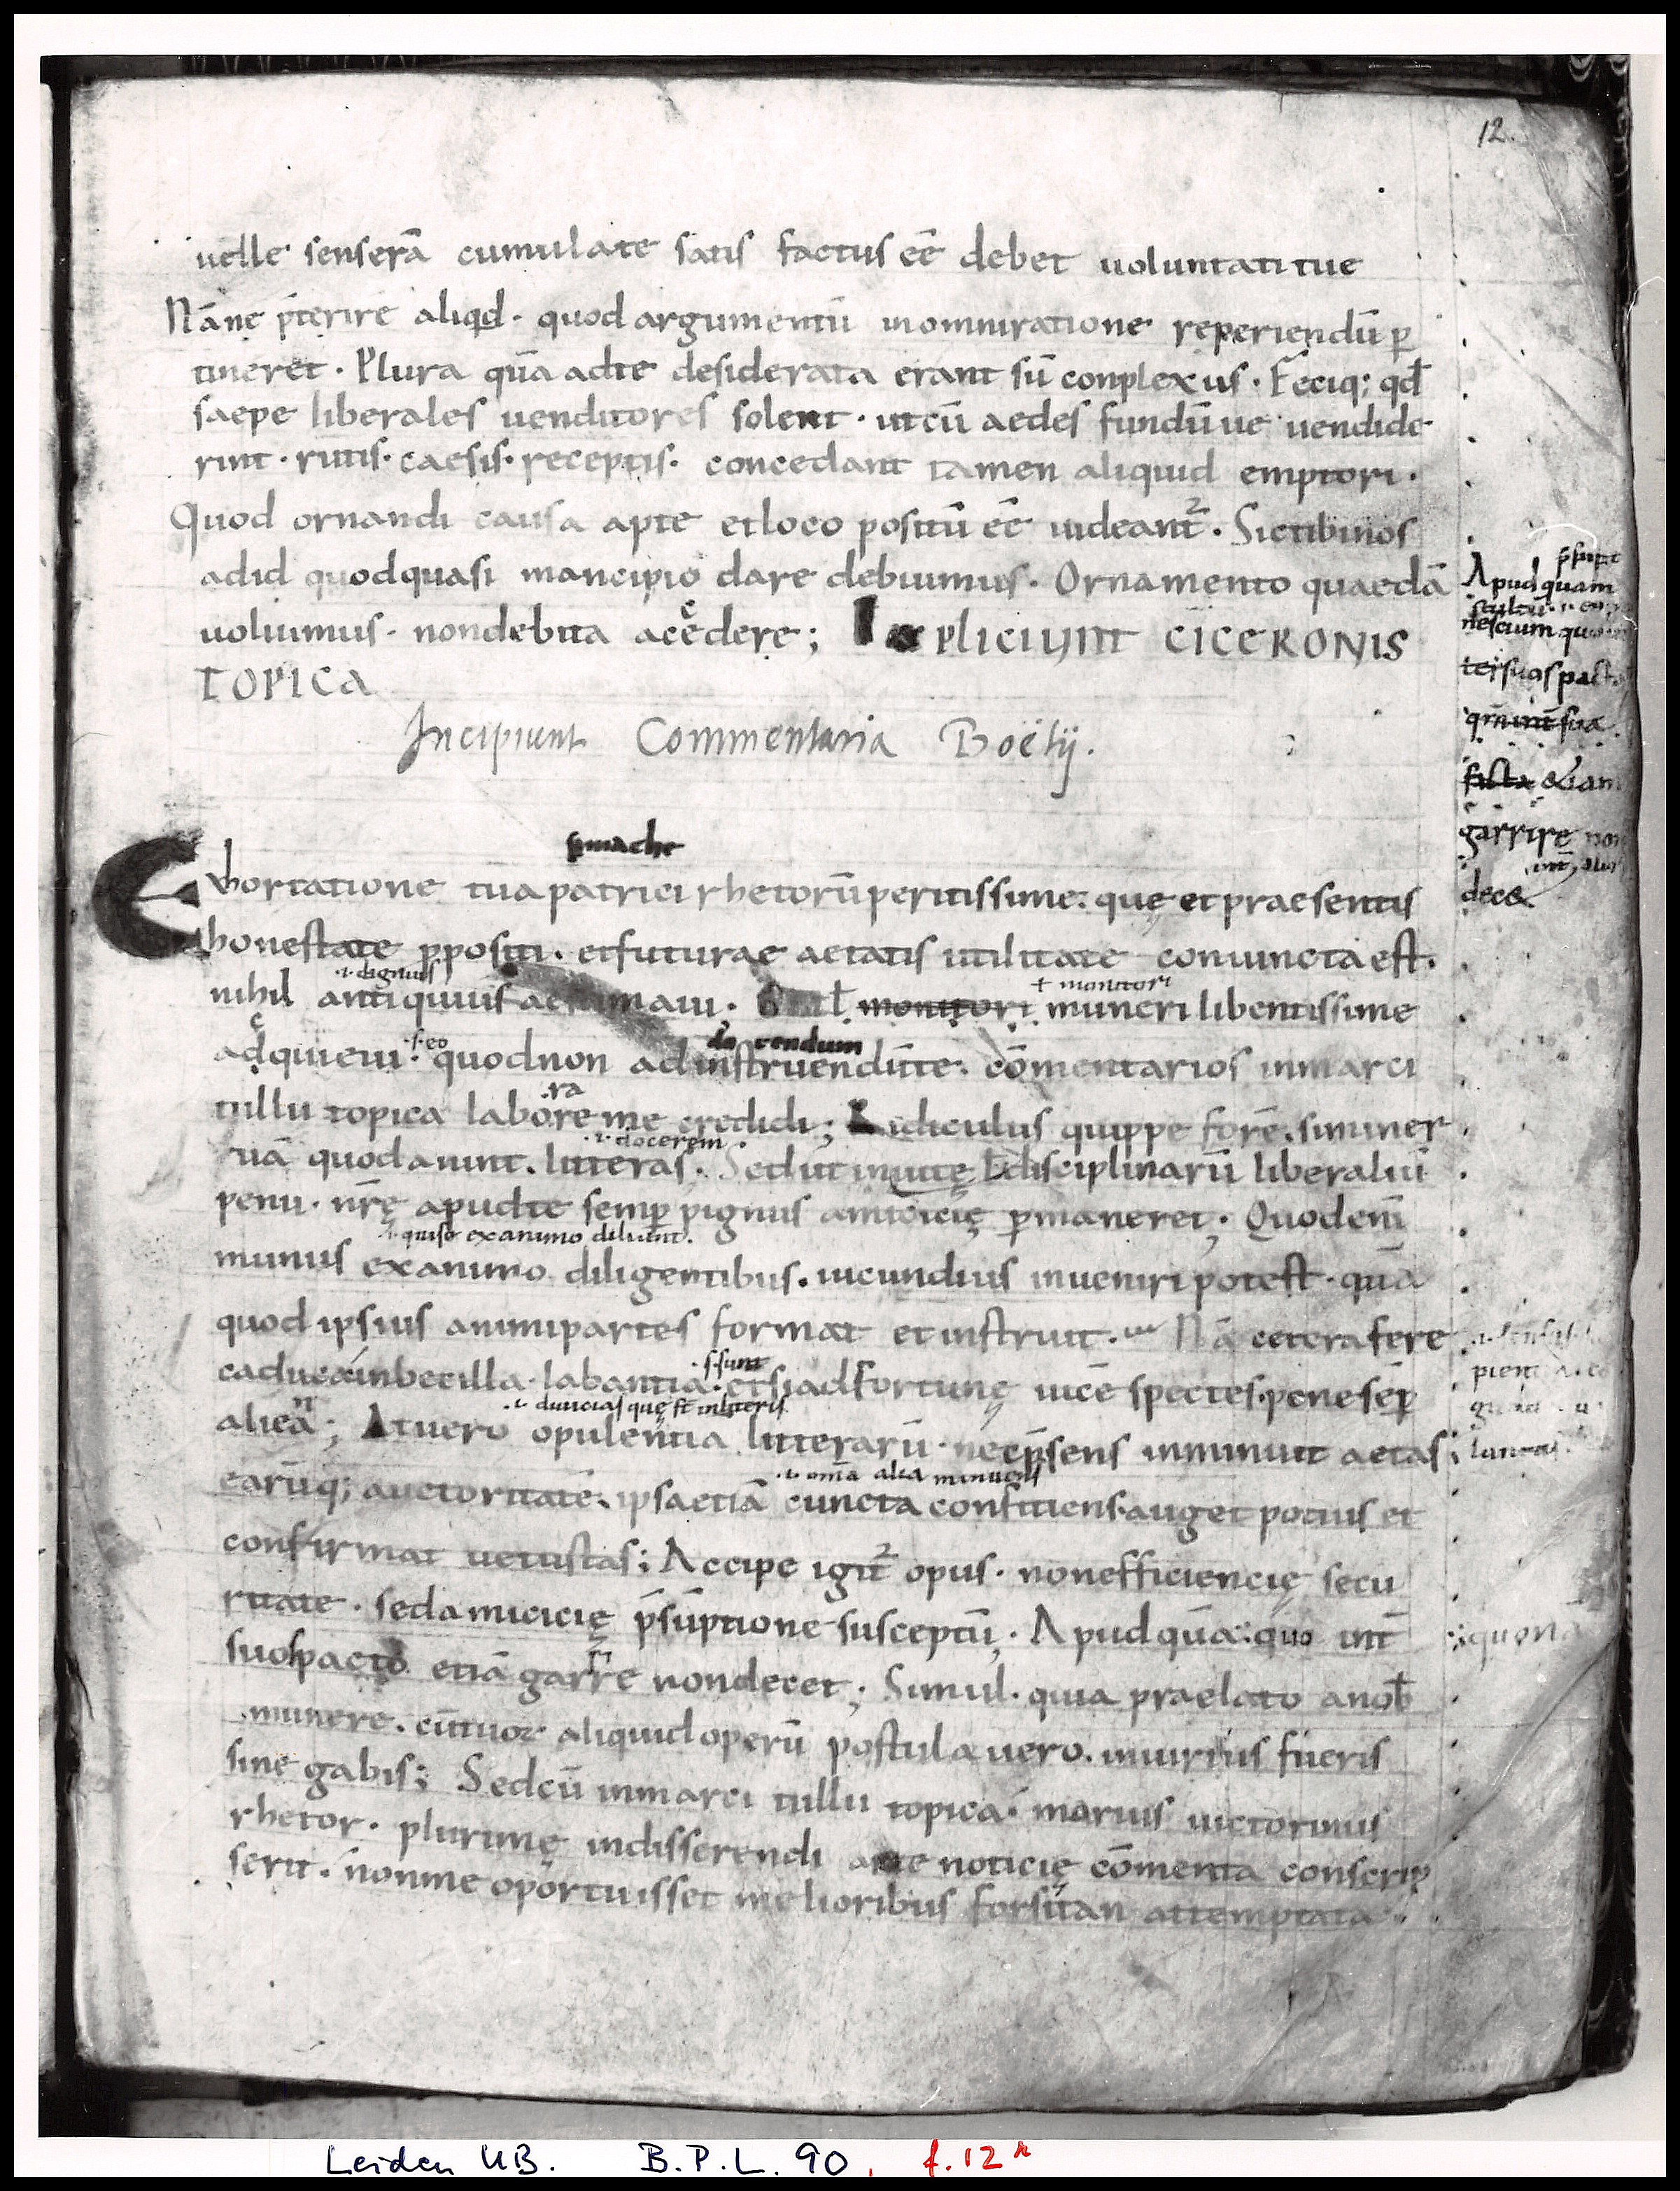 12.
uelle senserā cumulate satis factus eē debet uoluntati tue
Nā ne p̄terire aliqd · quod argumentū in omni ratione reperiendū p
tineret · Plura quā a dte desiderata erant sū conplexus · Feciq; qđ
saepe liberales uenditores solent · ut cū aedes fundūue uendide
rint · rutis · caesis · receptis · concedant tamen aliquid emptori ·
Quod ornandi causa apte et loco positū eē uideant² · Sic tibi nos
ad id quod quasi mancipio dare debuimus · Ornamento quaedā
uoluimus · non debita acedere; pliciunt CICERONIS
TOPICA
Incipiunt Commentaria Boëtij.
simache
Exhortatione tua patrici rhetorū peritissime: quę et praesentis
honestate ppositi · et futurae aetatis utilitate coniuncta est ·
·i· dignius
+ monitori
nihil antiquius aestimaui · monitori muneri libentissime
·s· eo
adquieui · quod non ad instruendū te · cōmentarios in marci
ra
tullii topica labore me credidi; Ridiculus quippe forē · si miner
·i· docerem ·
uā quod aiunt · litteras · Sed ut in tuę disciplinarū liberaliū
penu · nr̄ę apud te semp pignus amicicię pmaneret; Quod eni
·i· quise ex animo diliunt ·
munus ex animo diligentibus · iucundius inueniri potest · quā
quod ipsius animi partes format et instruit · Nā cetera fere
·s· sunt
caduca inbecilla · labantia · et si ad Fortunę uicē spectes · pene sep
n
·i· diuicias quę st̄ in litteris
alieā; At uero opulentia litterarū · nec p̄sens inminuit aetas;
·i· omā alia minuens
earūq; auctoritatē · ipsa etiā cuncta conficiens · auget potius et
confirmat uetustas; Accipe igit² opus · non efficiencię secu
ritate · sed amicicię p̄sūptione susceptū · Apud quā : quo int̄
suos pacto etiā garre non decet; Simul · quia praelato a nob
munere · cū tuoꝛ aliquid operū postulauero · iniurius fueris
sine gabis; Sed cū in marci tullii topica · marius uictorinus
rhetor · plurimę in disserendi arte noticię cōmenta conscrip
serit · non me oportuisset melioribus forsitan attemptata ·
Apud quam
nescium
ter suos pact
garrire non
decet
quonā
Leiden UB. B.P.L. 90, f. 12ʳ